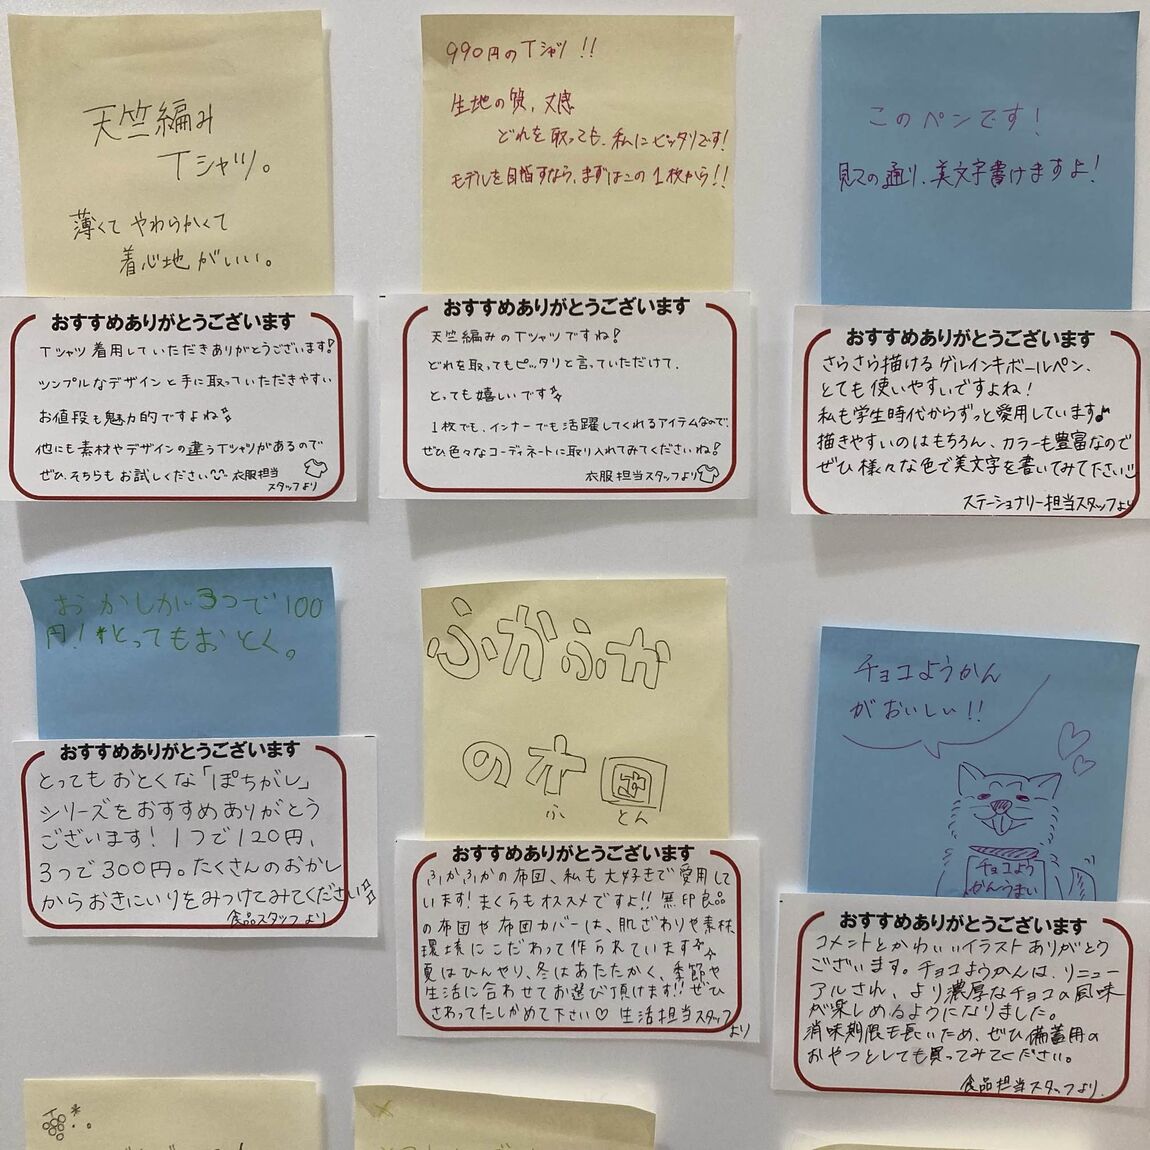 天竺編み
Tシャツ。
薄くて やわらかくて
着心地がいい。
おすすめありがとうございます
Tシャツ着用していただきありがとうございます!
シンプルなデザインと手に取っていただきやすい
お値段も魅力的ですよね
他にも素材やデザインの違うTシャツがあるので
ぜひ、そちらもお試しください 衣服担当
スタッフより
990円のTシャツ!!
生地の質、丈感
どれを取っても、私にピッタリです!
モデルを目指すなら、まずはこの1枚から!!
おすすめありがとうございます
天竺編みのTシャツですね!
どれを取ってもピッタリと言っていただけて、
とっても嬉しいです
1枚でも、インナーでも活躍してくれるアイテムなので、
ぜひ色々なコーディネートに取り入れてみてくださいね!
衣服担当スタッフより
このペンです!
見ての通り、美文字書けますよ!
おすすめありがとうございます
さらさら描けるゲルインキボールペン、
とても使いやすいですよね!
私も学生時代からずっと愛用しています♪
描きやすいのはもちろん、カラーも豊富なので
ぜひ様々な色で美文字を書いてみてください
ステーショナリー担当スタッフより
おかしが3つで100
円!*とってもおとく。
おすすめありがとうございます
とってもおとくな「ぽちがし」
シリーズをおすすめありがとう
ございます! 1つで120円、
3つで300円。たくさんのおかし
からおきにいりをみつけてみてください
食品スタッフより
ふかふか
のオ団
ふ とん
おすすめありがとうございます
ふかふかの布団、私も大好きで愛用して
います!まくらもオススメですよ!! 無印良品
の布団や布団カバーは、肌ざわりや素材、
環境にこだわって作られています
夏はひんやり、冬はあたたかく、季節や
生活に合わせてお選び頂けます!!ぜひ
さわってたしかめて下さい♡ 生活担当スタッフ
より
チョコようかん
がおいしい!!
チョコよう
かんうまい
おすすめありがとうございます
コメントとかわいいイラストありがとう
ございます。チョコようかんは、リニュー
アルされ、より濃厚なチョコの風味
が楽しめるようになりました。
消味期限も長いため、ぜひ備蓄用の
おやつとしても買ってみてください。
食品担当スタッフより